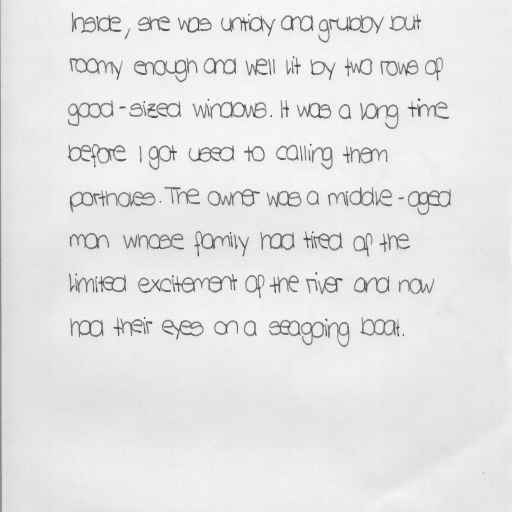 Inside, she was untidy and grubby but
roomy enough and well lit by two rows of
good-sized windows. It was a long time
before I got used to calling them
portholes. The owner was a middle-aged
man whose family had tired of the
limited excitement of the river and now
had their eyes on a seagoing boat.